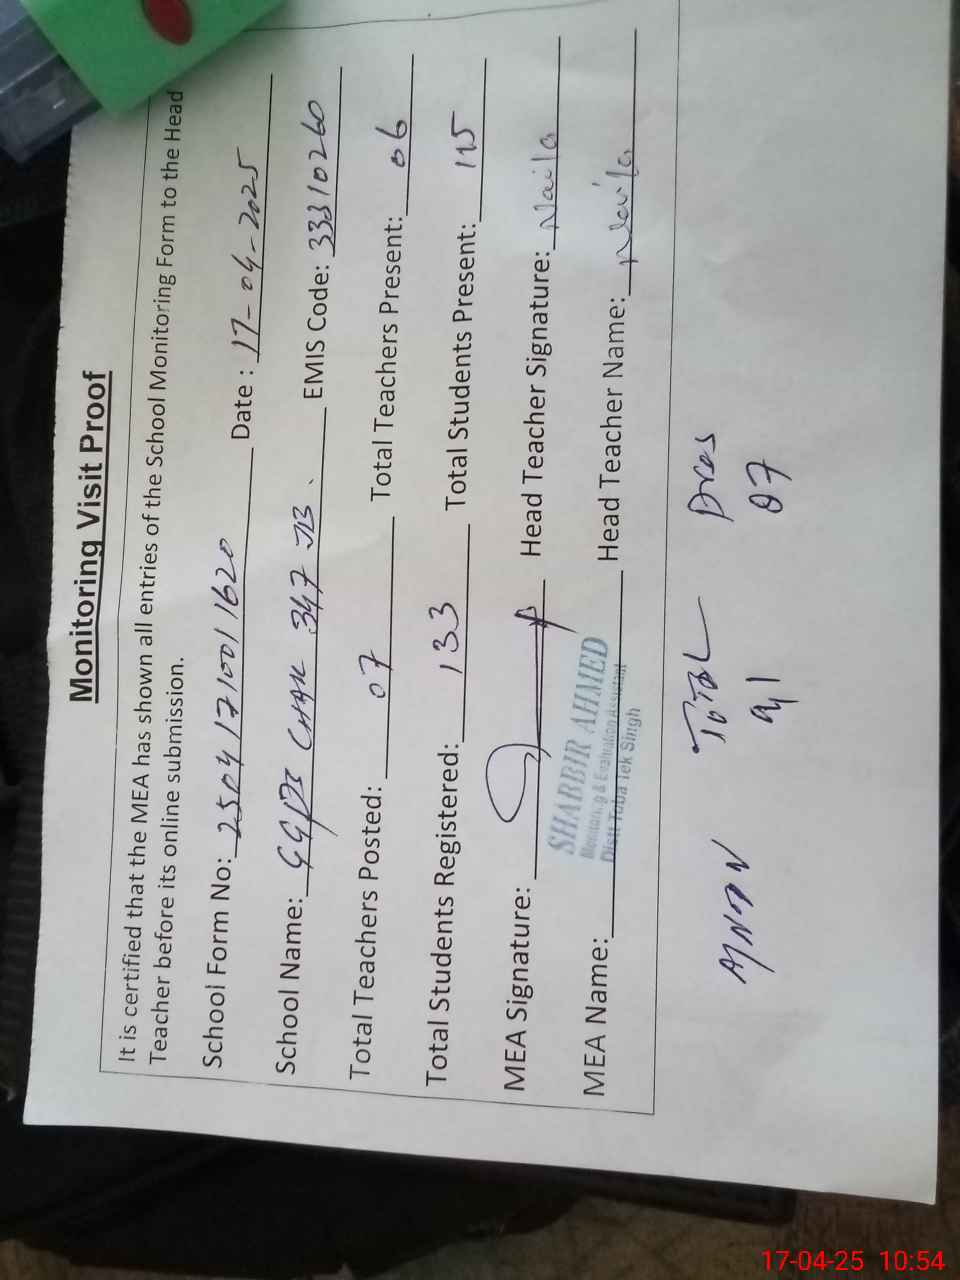 Monitoring Visit Proof
It is certified that the MEA has shown all entries of the School Monitoring Form to the Head
Teacher before its online submission.
School Form No: 2504171001620 Date : 17-04-2025
School Name: GGPS CHAK 347 JB. EMIS Code: 33310260
Total Teachers Posted: 07 Total Teachers Present: 06
Total Students Registered: 133 Total Students Present: 115
MEA Signature: Head Teacher Signature: Naila
SHABBIR AHMED
Monitoring & Evaluation Assistant
Distt Toba Tek Singh
MEA Name: Head Teacher Name: Naila
Total Pres
07
17-04-25 10:54